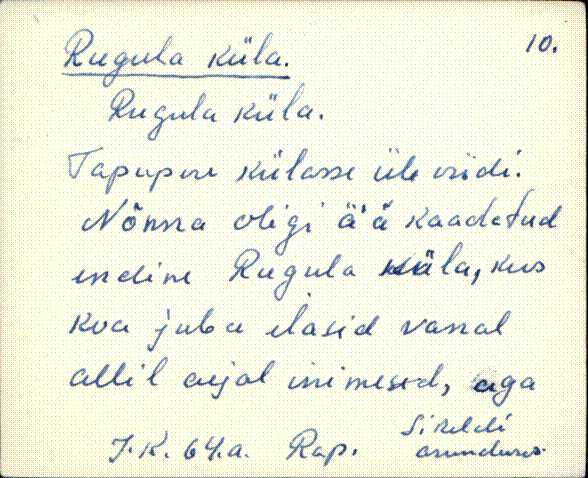 Rugula küla.
10.
Rugula küla.
Tapupere külasse üle viidi.
Nõnna oligi ä'ä kaadatud
endine Rugula küla, kus
kua juba elasid vannal
allil aejal inimesed, aga
J.K. 64.a. Rap. Sikeldi
asunduses